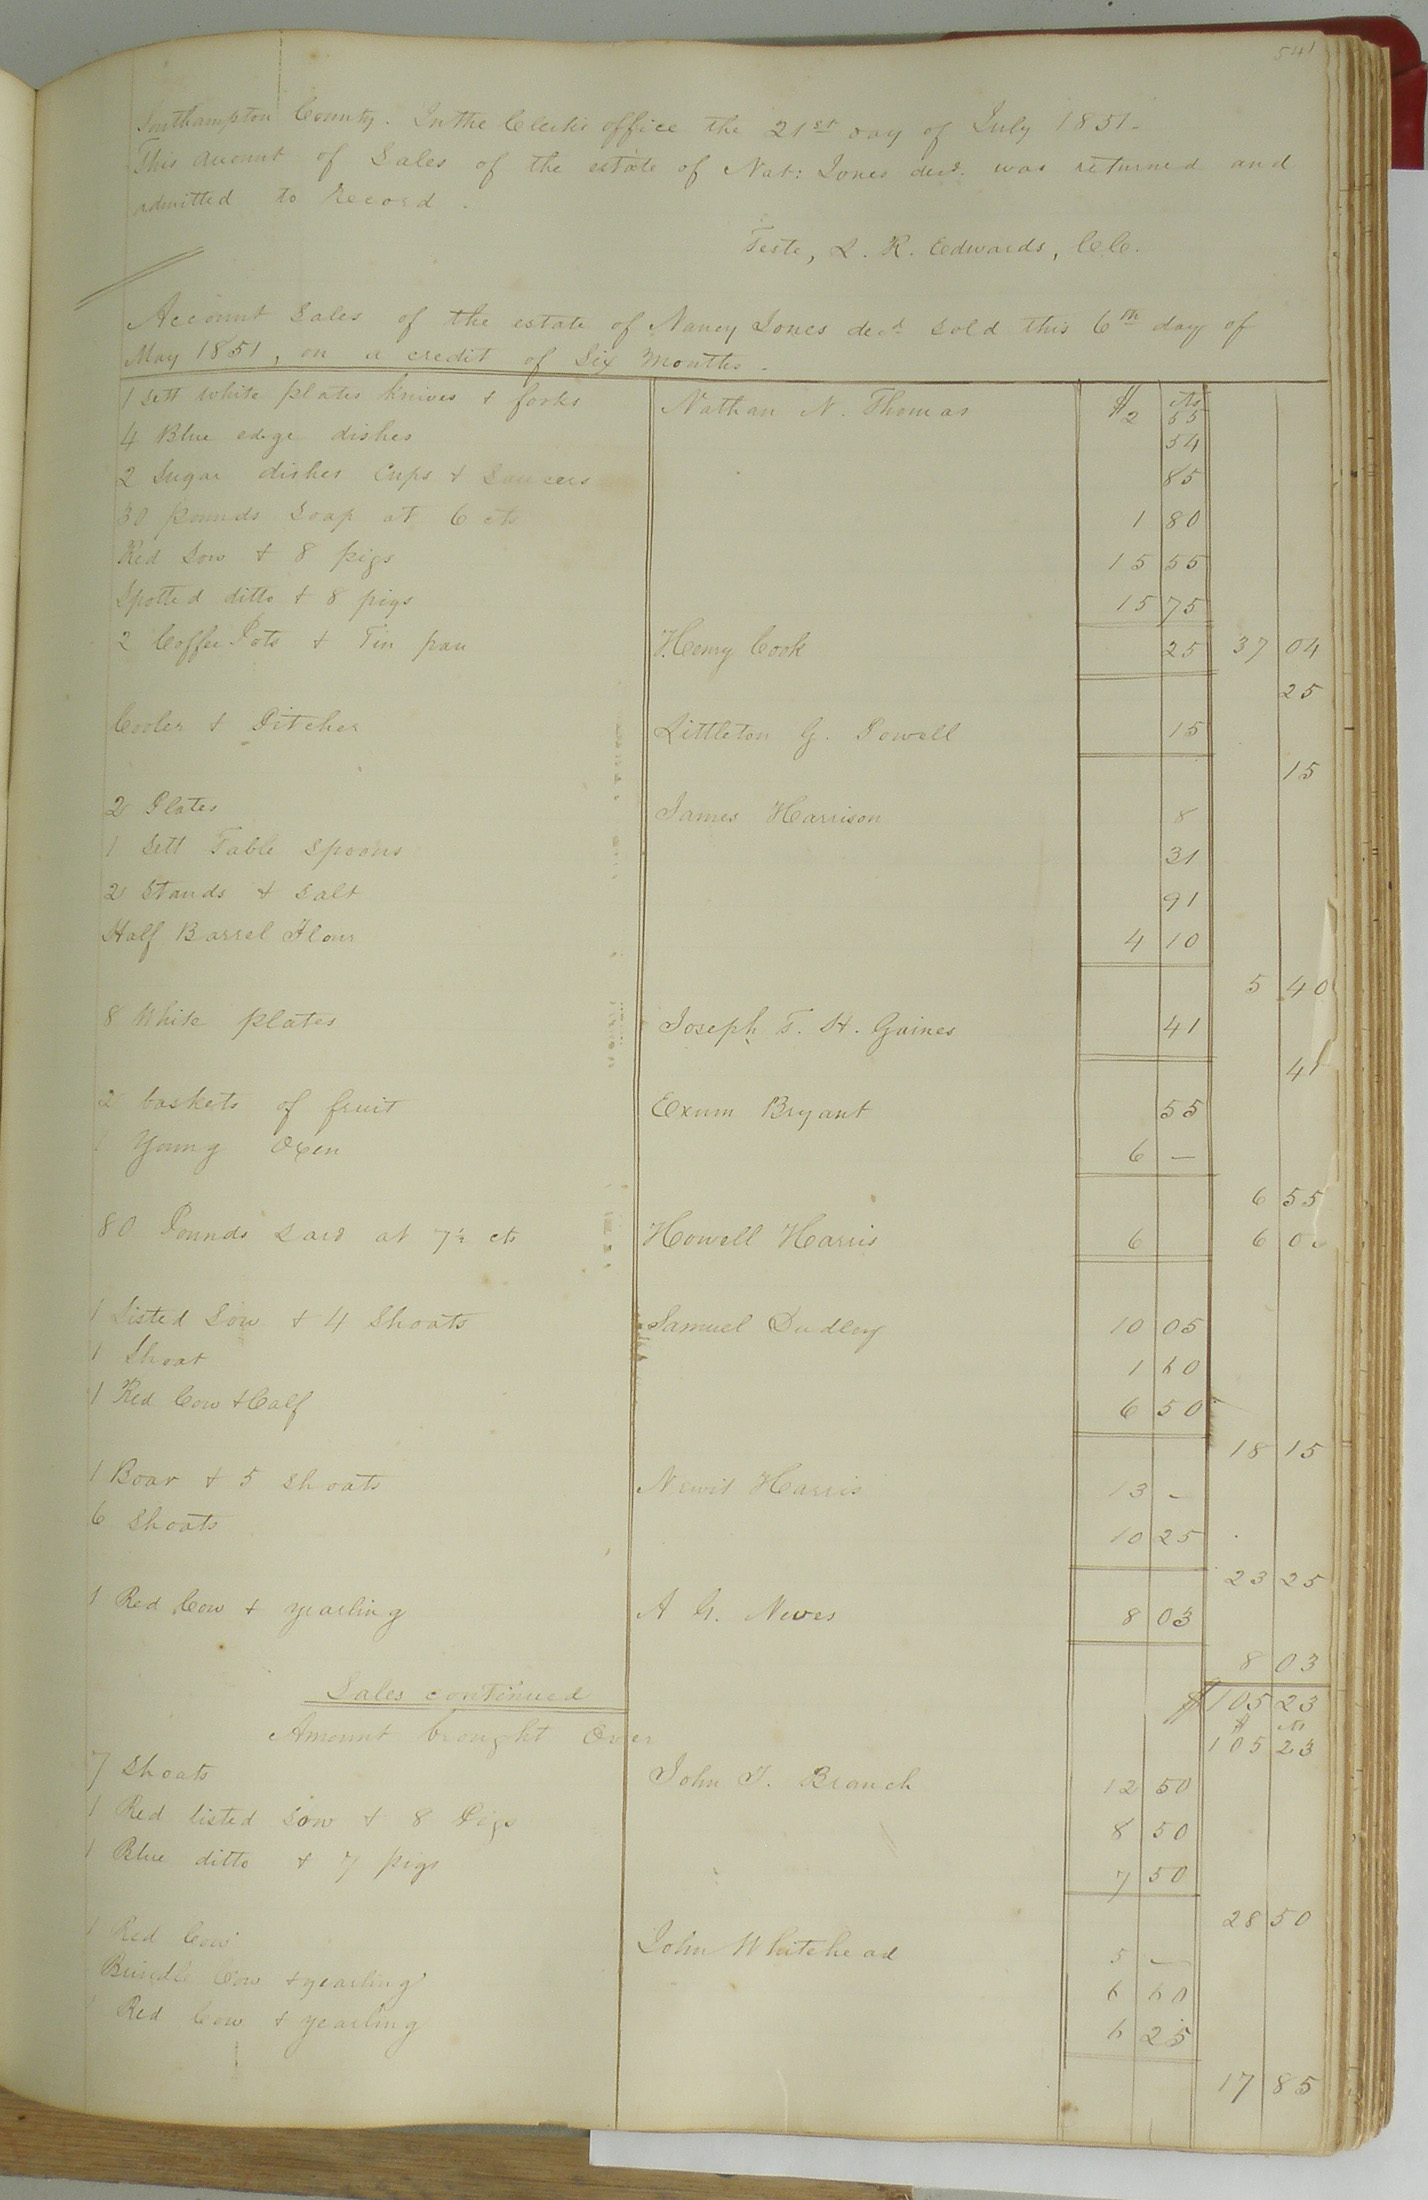 541
Southampton County. In the Clerks office the 21st day of July 1851.
This account of Sales of the estate of Nat: Jones decd. was returned and
admitted to Record.
Teste, L. R. Edwards, C.C.
Account Sales of the estate of Nancy Jones decd sold this 6th day of
May 1851, on a credit of Six Months.
1 Sett white plates knives & forks Nathan N. Thomas $2 cts 55
4 Blue edge dishes 54
2 Sugar dishes Cups & Saucers 85
30 pounds Soap at 6 cts 1 80
Red Sow & 8 pigs 15 55
Spotted ditto & 8 pigs 15 75
2 Coffee Pots & Tin pan Henry Cook 25 37 04
25
Cooler & Pitcher Littleton G. Powell 15
15
2 Plates James Harrison 8
1 Sett Table Spoons 31
2 Stands & Salt 91
Half Barrel Flour 4 10
5 40
8 White plates Joseph T. H. Gaines 41
41
2 baskets of fruit Exum Bryant 55
1 Young Oxen 6 —
6 55
80 Pounds Lard at 7½ cts Howell Harris 6 6 00
1 Listed Sow & 4 Shoats Samuel Dudley 10 05
1 Shoat 1 60
1 Red Cow & Calf 6 50
18 15
1 Boar & 5 Shoats Newit Harris 13 —
6 Shoats 10 25
23 25
1 Red Cow & yearling A G. Neves 8 03
8 03
Sales continued $105 23
Amount brought Over $ cts 105 23
7 Shoats John T. Branch 12 50
1 Red listed Sow & 8 Pigs 8 50
1 Blue ditto & 7 pigs 7 50
28 50
1 Red Cow John Whitehead 5 —
Brindle Cow & yearling 6 60
1 Red Cow & yearling 6 25
17 85